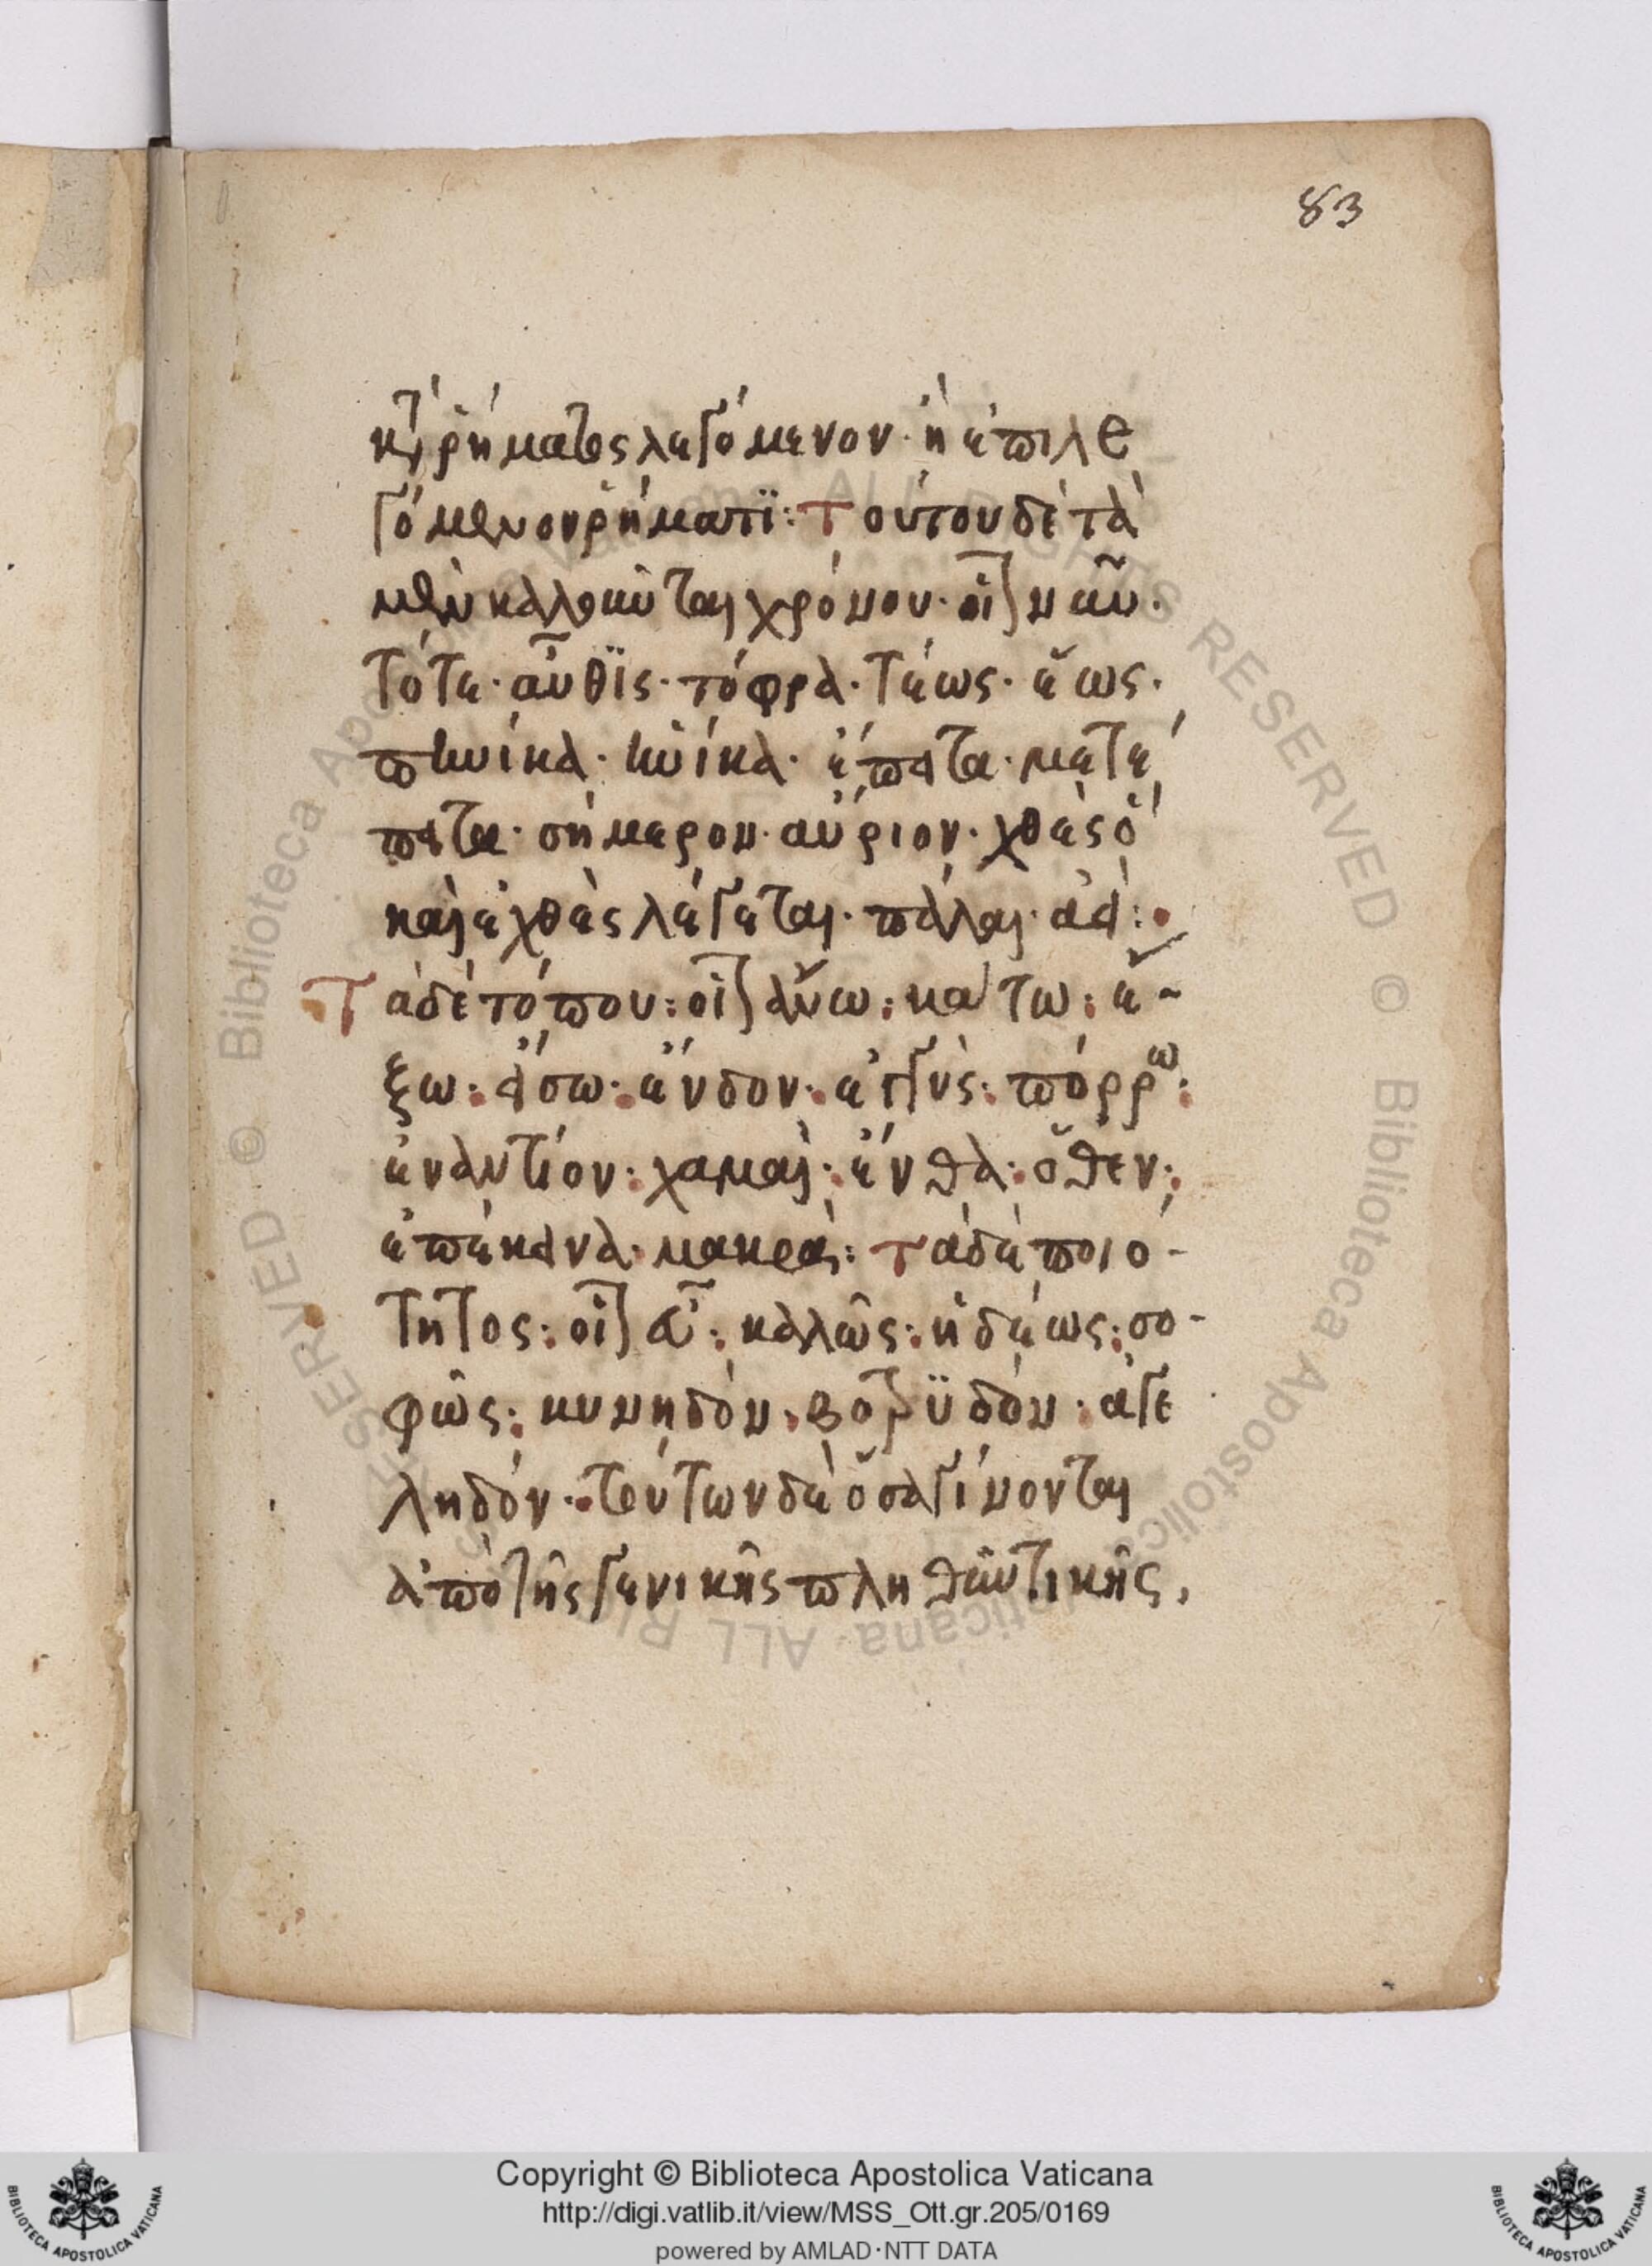 83
κτ ῥήματος λεγόμενον· ἢ ἐπιλε
γόμενον ῥήματϊ: Τούτου δὲ τὰ
μὲν καλεῖται χρόνου· οἷον νῦν·
τότε· αὖθϊς· τόφρα· τέως· ἕως·
πηνίκα· ἡνίκα· ἔπειτα· μετέ
πειτα· σήμερον· αὔριον· χθὲς ὃ
καὶ ἐχθὲς λέγεται· πάλαι· ἀεί:
Τὰ δὲ τόπου: οἷον ἄνω: κάτω: ἔ-
ξω: εἴσω· ἔνδον· ἐγγύς: πόρρω:
ἐναντίον: χαμαὶ: ἔνθα: ὅθεν:
ἐπέκεινα· μακρὰν: Τὰ δὲ ποιό-
τητος: οἷον εὖ: καλῶς: ἡδέως: σο-
φῶς: κυνηδὸν· βοτρϋδὸν· ἀγε
ληδόν· τούτων δὲ ὅσα γίνονται
ἀπὸ τῆς γενικῆς πληθυντικῆς,
Copyright © Biblioteca Apostolica Vaticana
http://digi.vatlib.it/view/MSS_Ott.gr.205/0169
powered by AMLAD·NTT DATA
BIBLIOTECA APOSTOLICA VATICANA
BIBLIOTECA APOSTOLICA VATICANA